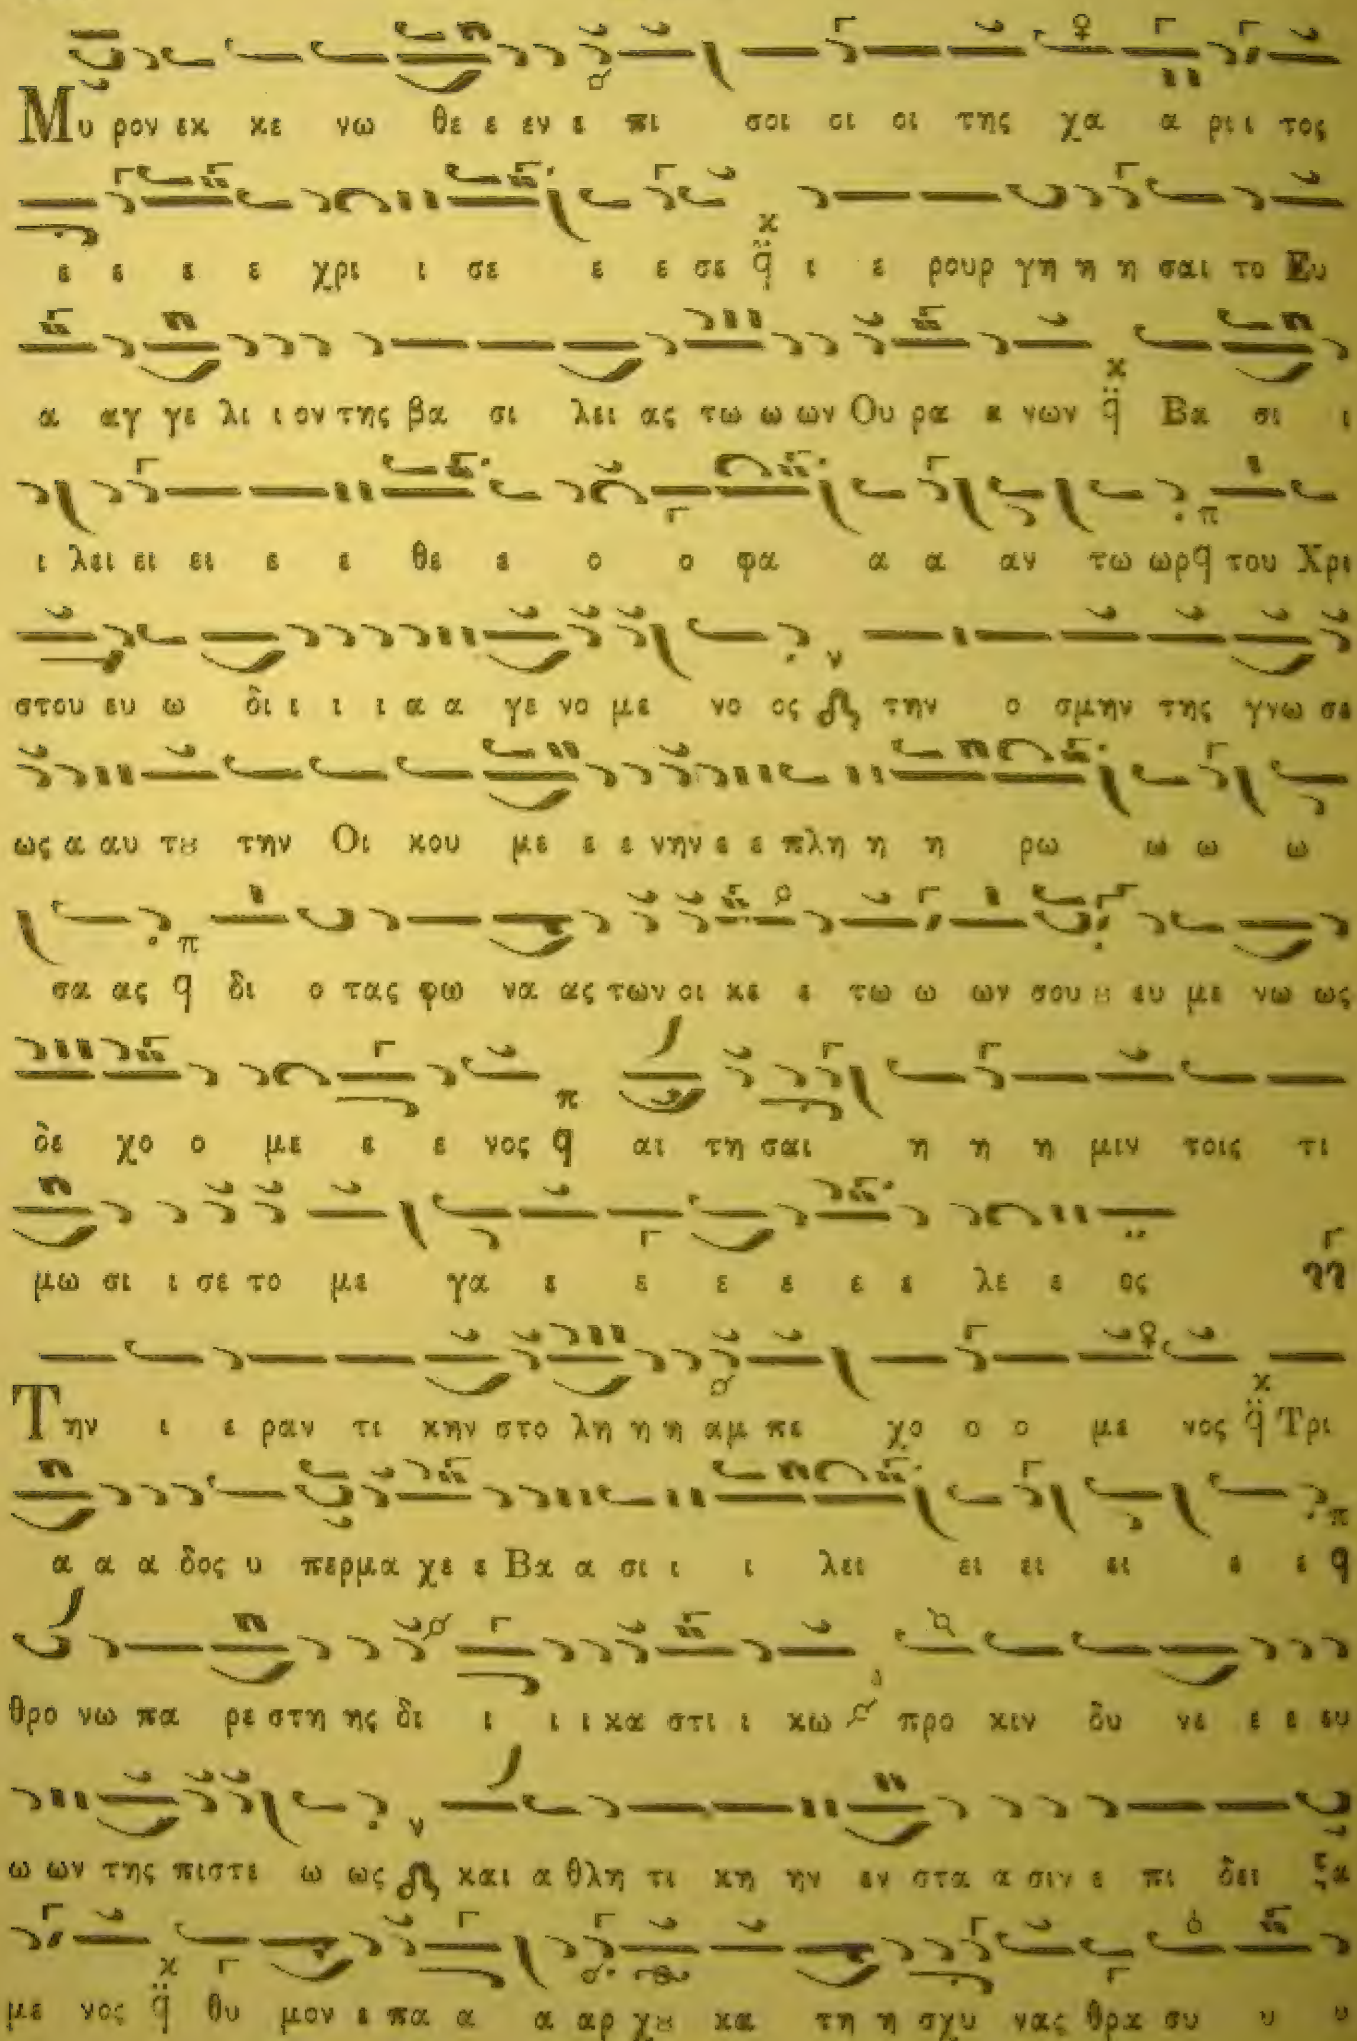 Μυ ρον εκ κε νω θε ε εν ε πι σοι οι οι της χα α ρι ι τος
ε ε ε ε χρι ι σε ε ε σε ι ε ρουρ γη η η σαι το Ευ
α αγ γε λι ι ον της βα σι λει ας τω ω ων Ου ρα α νων Βα σι ι
ι λει ει ει ε ε θε ε ο ο φα α α αν τω ωρ του Χρι
στου ευ ω δι ι ι ι α α γε νο με νο ος την ο σμην της γνω σε
ως α αυ τȣ την Οι κου με ε ε νην ε ε πλη η η ρω ω ω ω
σα ας δι ο τας φω να ας των οι κε ε τω ω ων σου ȣ ευ με νω ως
δε χο ο με ε ε νος αι τη σαι η η η μιν τοις τι
μω σι ι σε το με γα ε ε ε ε ε ε λε ε ος
Την ι ε ραν τι κην στο λη η η αμ πε χο ο ο με νος Τρι
α α α δος υ περμα χε ε Βα α σι ι ι λει ει ει ει ε ε
θρο νω πα ρε στη ης δι ι ι ι κα στι ι κω προ κιν δυ νε ε ε ευ
ω ων της πιστε ω ως και α θλη τι κη ην εν στα α σιν ε πι δει ξα
με νος θυ μον ε πα α α αρ χȣ κα τη η σχυ νας θρα συ υ υ